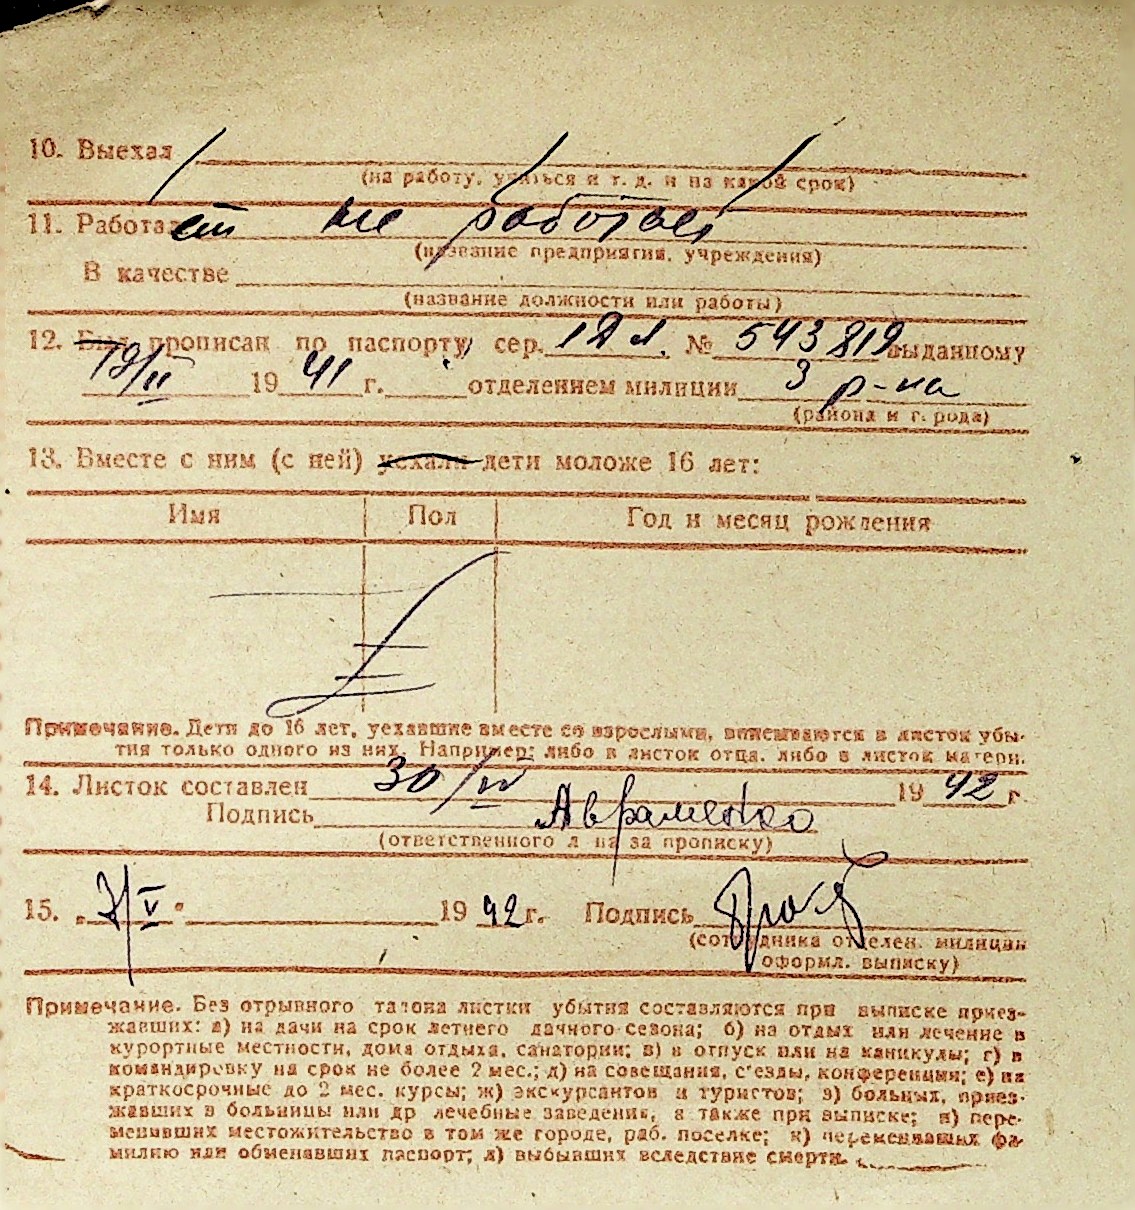 10. Выехал
(на работу, учиться и т. д. и на какой срок)
11. Работает не работает
(название предприятия, учреждения)
В качестве
(название должности или работы)
12. Был прописан по паспорту сер. 1 Д Л. № 543819 выданному
19/II 1941 г. отделением милиции 3 р-на
(района и города)
13. Вместе с ним (с ней) уехали дети моложе 16 лет:
Имя Пол Год и месяц рождения
Примечание. Дети до 16 лет, уехавшие вместе со взрослыми, вписываются в листок убы-
тия только одного из них. Например: либо в листок отца, либо в листок матери.
14. Листок составлен 30/IV 1942 г.
Подпись Авраменко
(ответственного лица за прописку)
15. „ /V “ 1942 г. Подпись
(сотрудника отделен. милиции
оформл. выписку)
Примечание. Без отрывного талона листки убытия составляются при выписке приез-
жавших: а) на дачи на срок летнего дачного сезона; б) на отдых или лечение в
курортные местности, дома отдыха, санатории; в) в отпуск или на каникулы; г) в
командировку на срок не более 2 мес.; д) на совещания, с'езды, конференции; е) на
краткосрочные до 2 мес. курсы; ж) экскурсантов и туристов; з) больных, приез-
жавших в больницы или др лечебные заведения, а также при выписке; и) пере-
менивших местожительство в том же городе, раб. поселке; к) переменивших фа-
милию или обменавших паспорт; л) выбывших вследствие смерти.